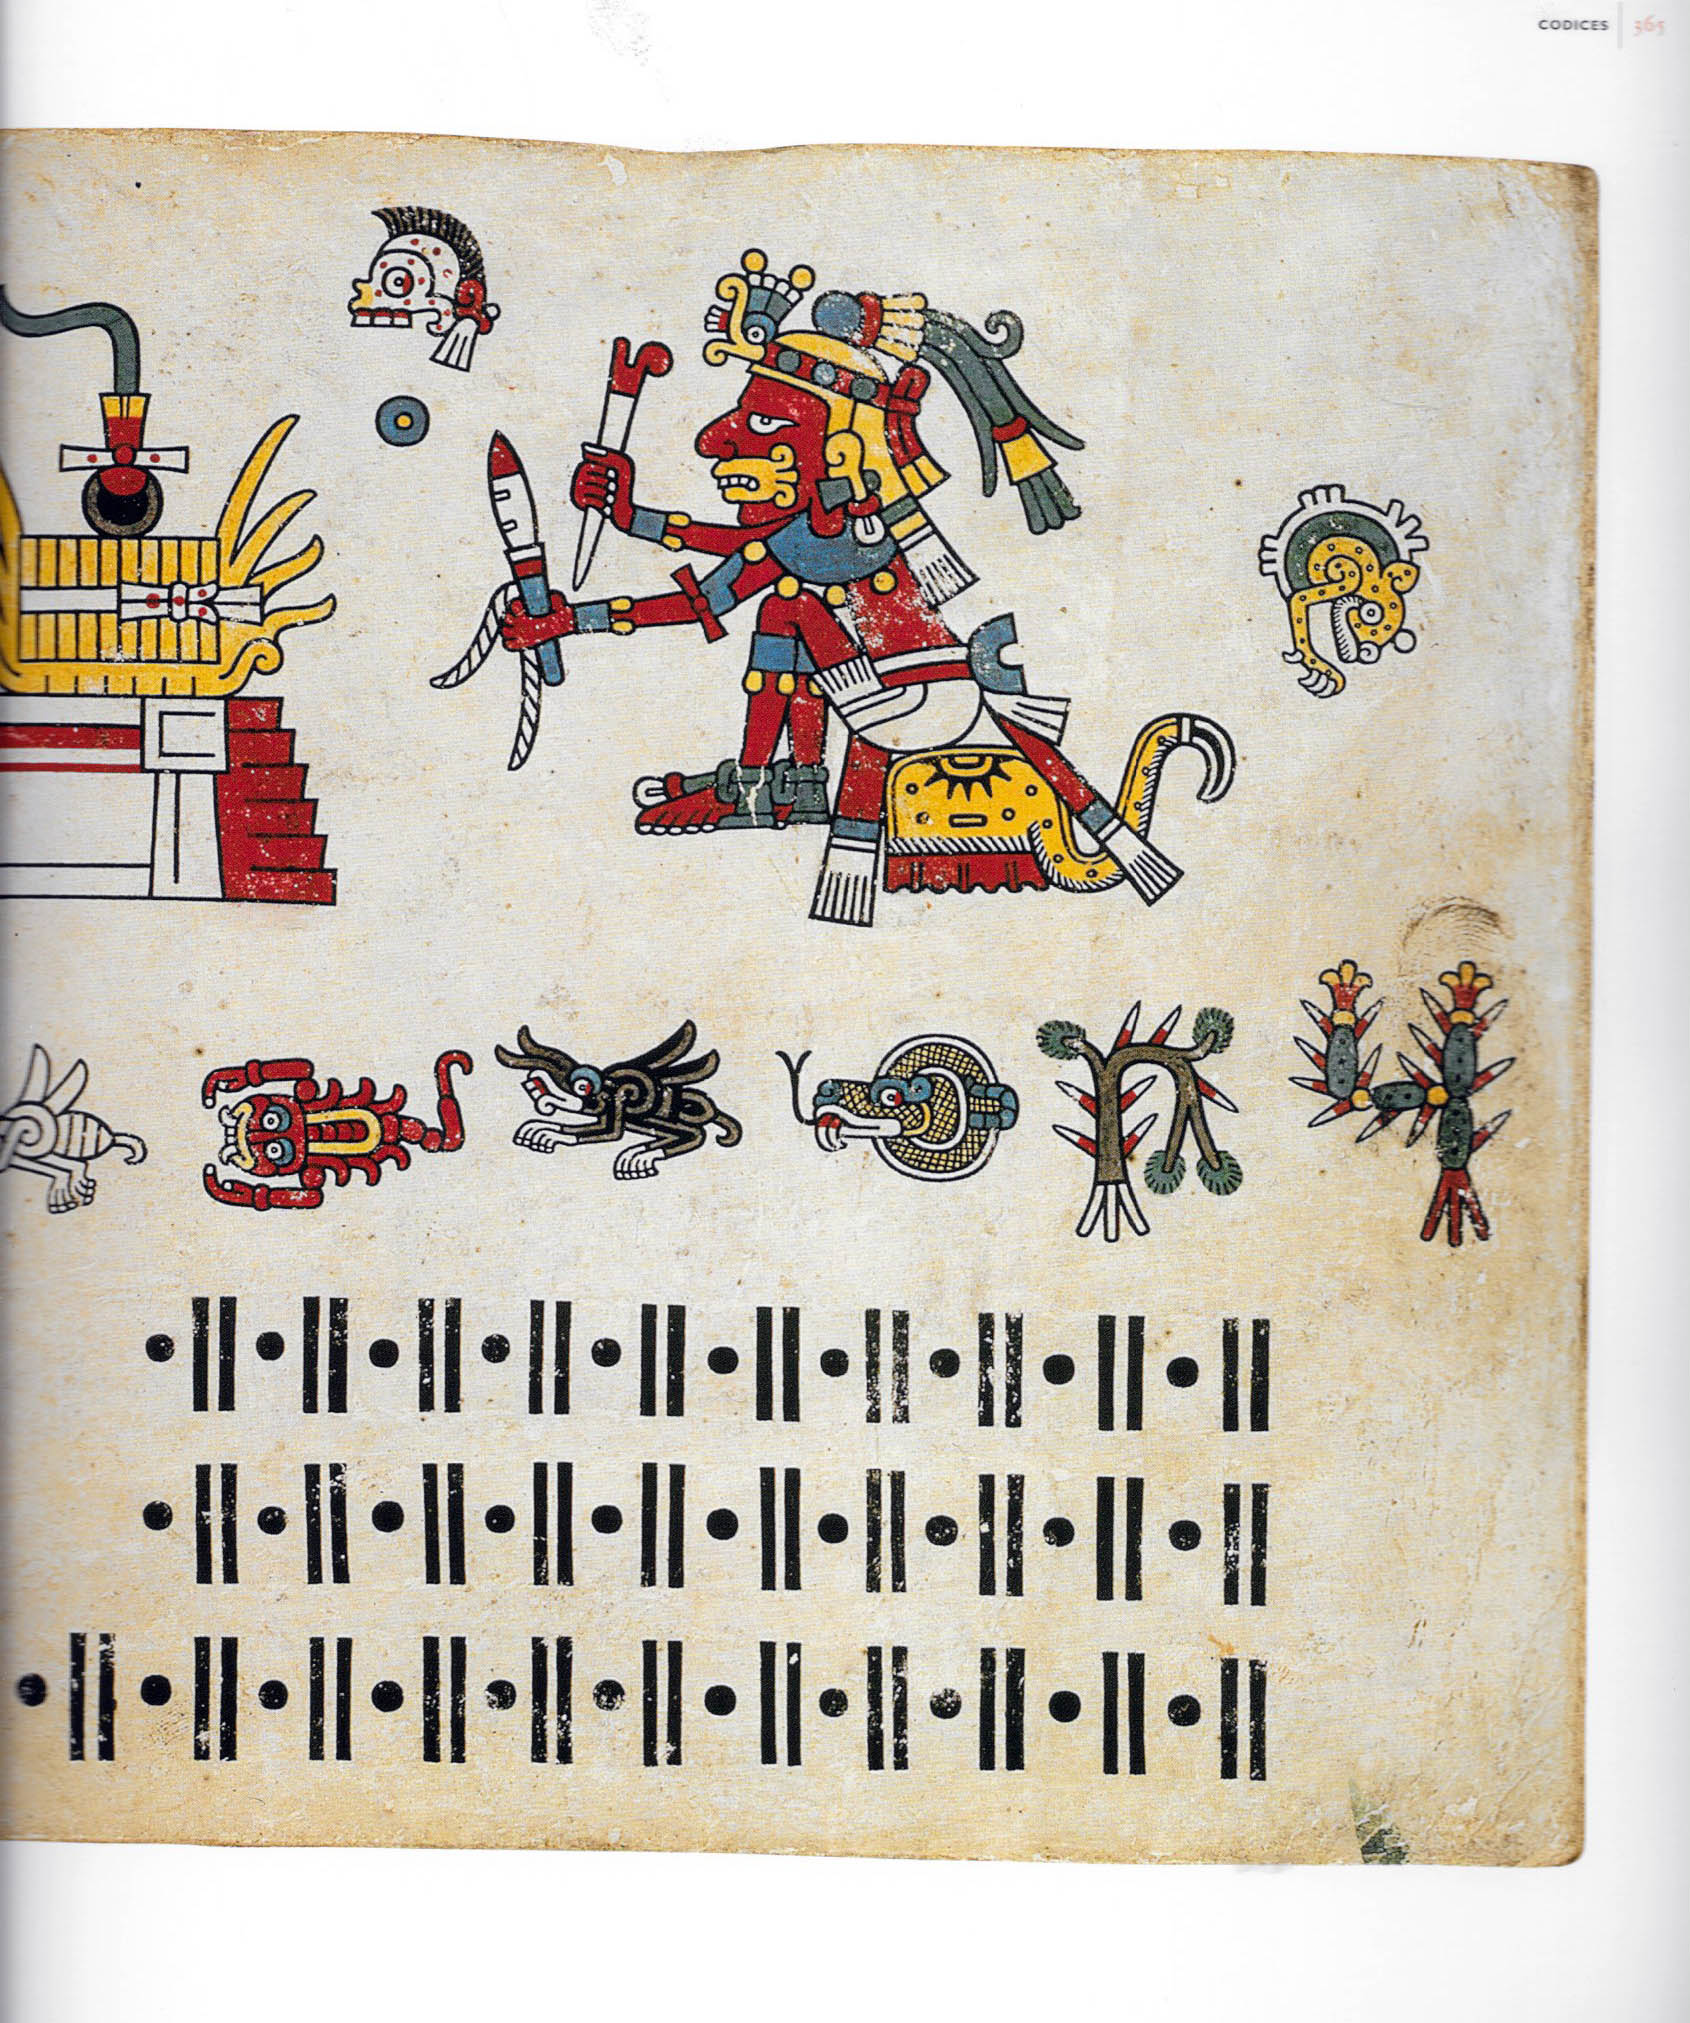 CODICES 365